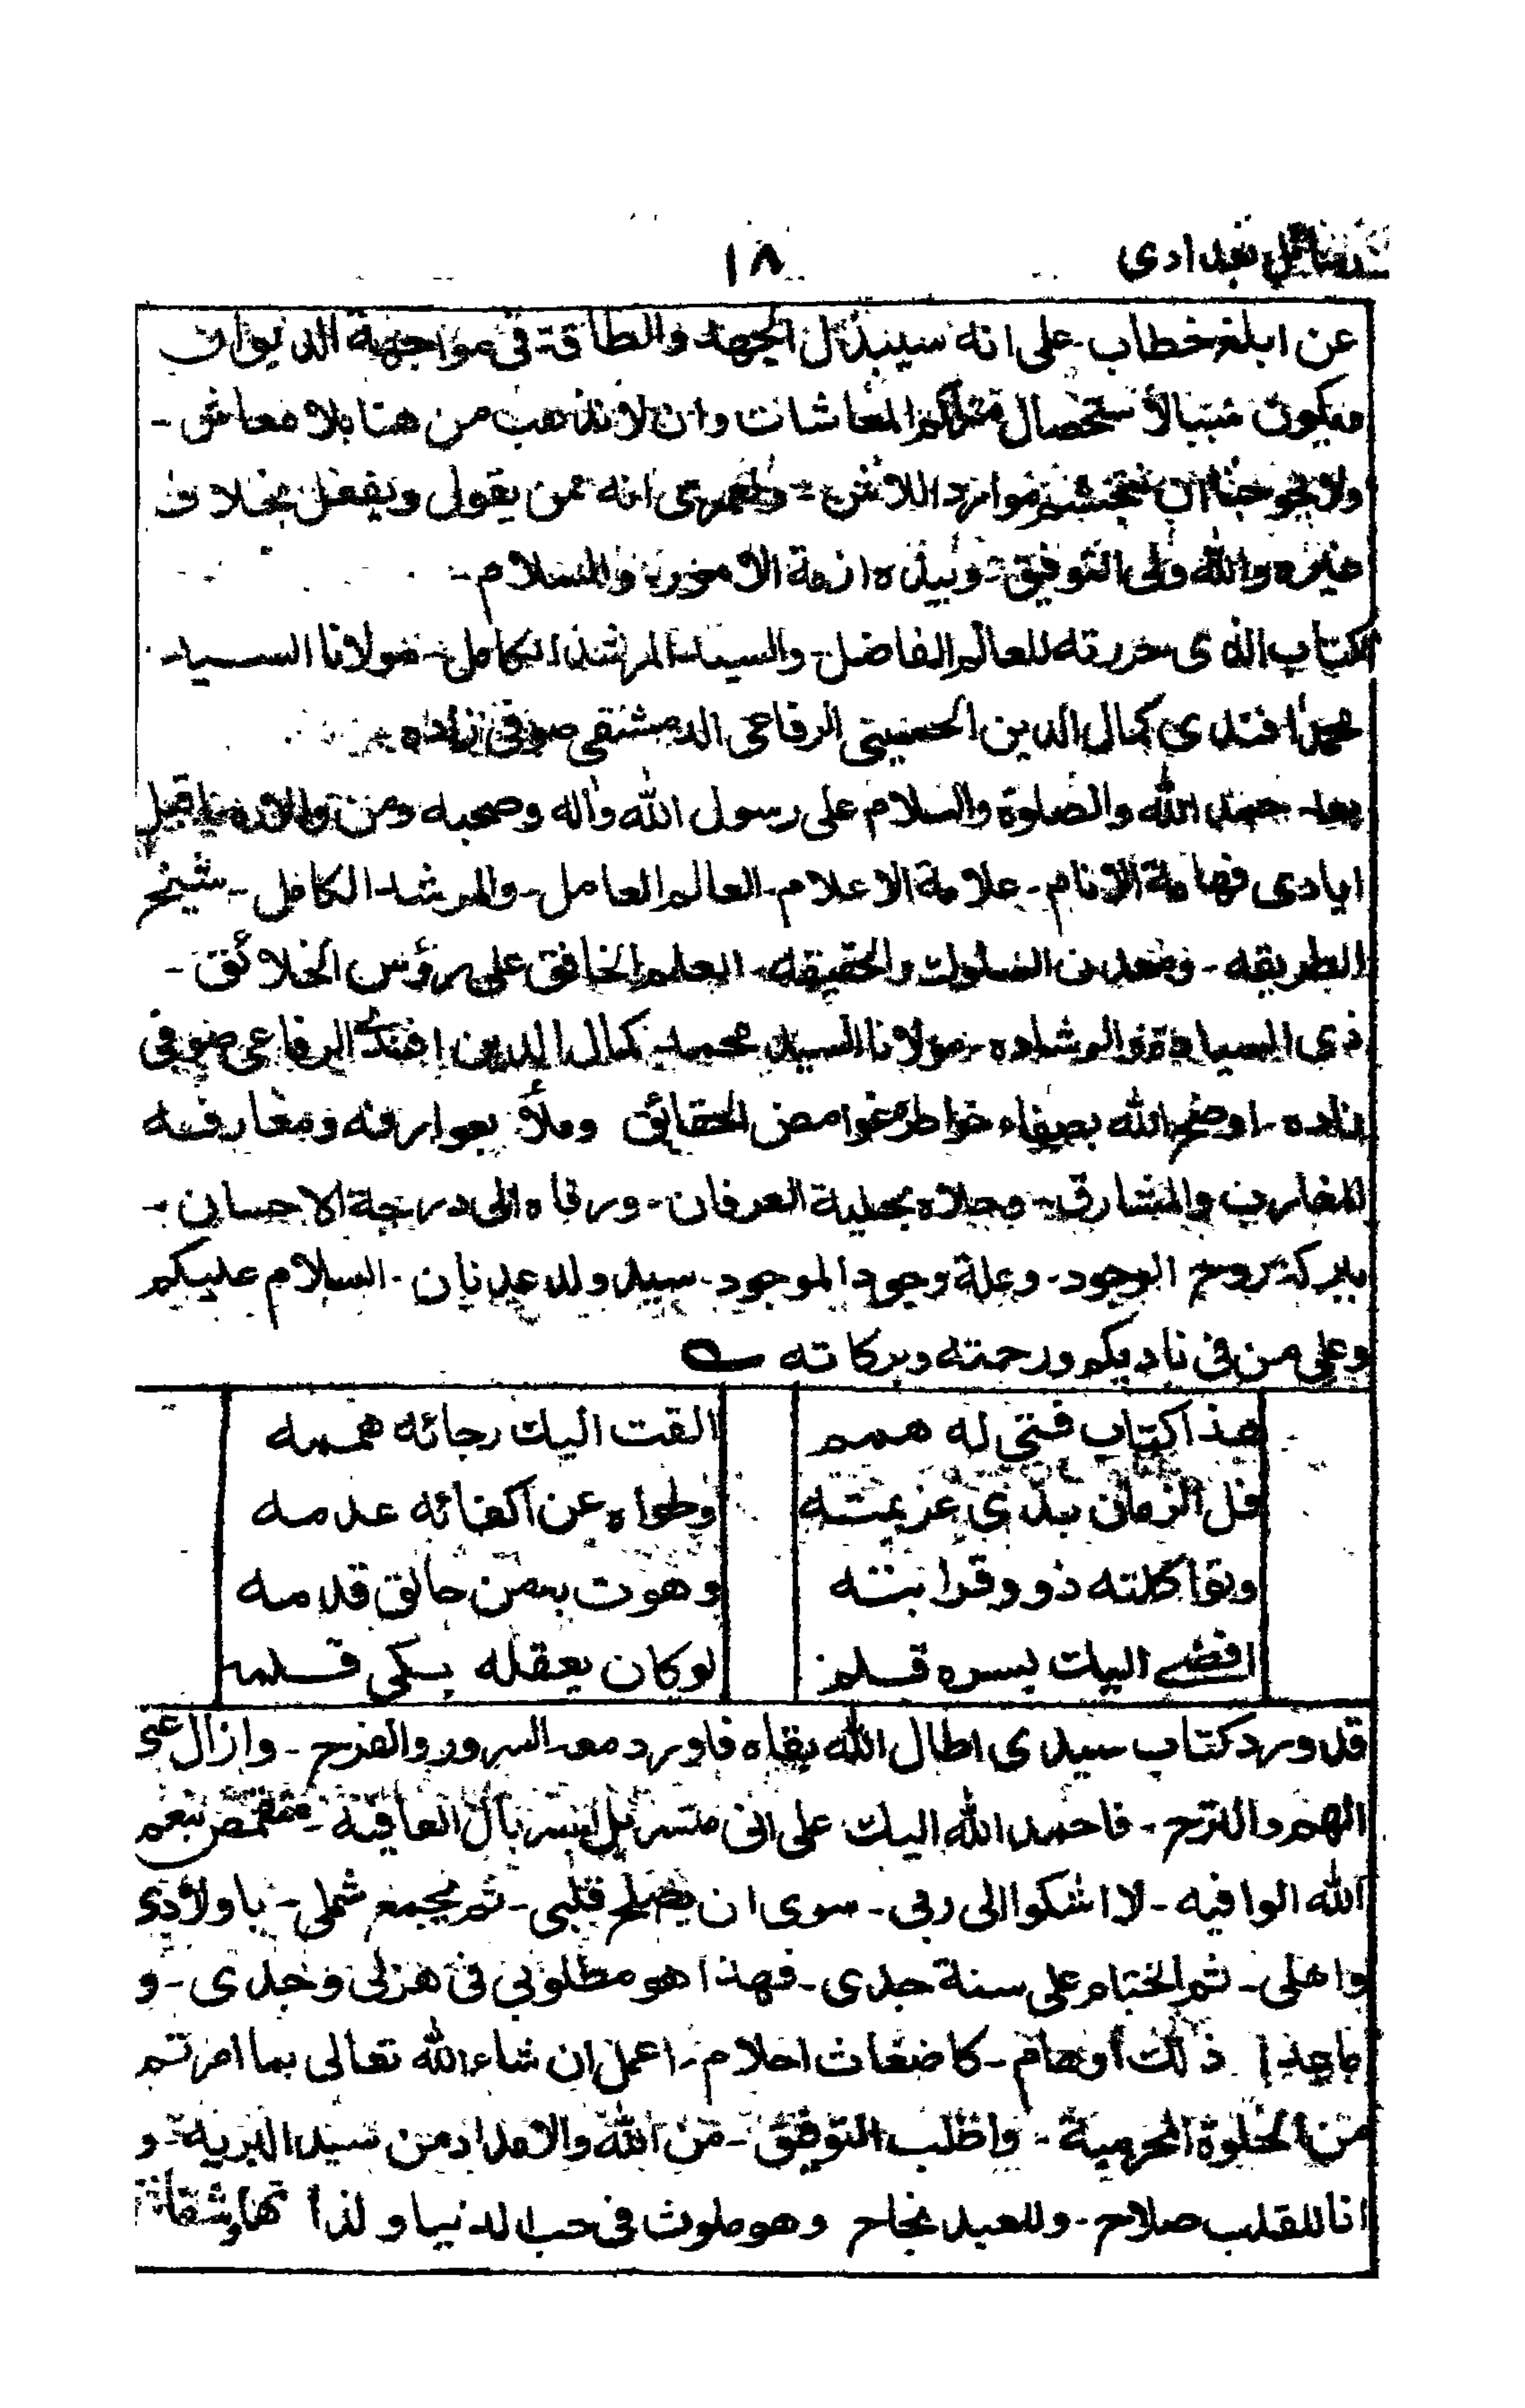 رسائل بغدادی
١٨
عن ابلغ خطاب علی انه سیبذل الجهد والطاقة فی مواجهة الدیوان
فیکون سببا لأستحصال متراکم المعاشات وان لا نذهب من هنا بلا معاش -
ولا یحوجنا ان نتجشم موارد اللائن - ولعمری انه ممن یقول ویفعل بخلاف
غیره والله ولی التوفیق - وبیده ازمة الامور والسلام -
الکتاب الذی حررته للعالم الفاضل - والسید المرشد الکامل - مولانا السید
محمد افندی کمال الدین الحسینی الرفاعی الدمشقی صوفی زاده
بعد حمد الله والصلوة والسلام علی رسول الله واله وصحبه ومن والاه اقبل
ایادی فهامة الانام - علامة الاعلام - العالم العامل - والمرشد الکامل - شیخ
الطریقه - ومعدن السلوک والحقیقه - العلم الخافق علی رؤس الخلائق -
ذی السیادة والرشاده - مولانا السید محمد کمال الدین افندی الرفاعی صوفی
زاده - اوضح الله بصفاء خواطره غوامض الحقائق وملأ بعوارفه ومعارفه
المغارب والمشارق - وحلاه بحلیة العرفان - ورقاه الی درجة الاحسان -
ببرکة روح الوجود - وعلة وجود الموجود - سید ولد عدنان - السلام علیکم
وعلی من فی نادیکم ورحمته وبرکاته
هذا کتاب فتی له همم القت الیک رجائه هممه
فل الزمان یدی عزیمته وطواه عن اکفائه عدمه
وتواکلته ذوو قرابته وهوت به من حالق قدمه
افضی الیک بسره قلم لو کان یعقله بکی قلمه
قد ورد کتاب سیدی اطال الله بقاه فاورد معه السرور والفرح - وازال عنی
الهم والترح - فاحمد الله الیک علی انی متسربل بسربال العافیة - متقمص بنعم
الله الوافیه - لا اشکوا الی ربی - سوی ان یصلح قلبی - ثم یجمع شملی - باولادی
واهلی - ثم الختام علی سنة جدی - فهذا هو مطلوبی فی هزلی وجدی - و
ما عدا ذلک اوهام - کاضغاث احلام - اعمل ان شاء الله تعالی بما امرتم
من الخلوة المحرمیة - واطلب التوفیق - من الله والامداد من سید البریه - و
انا للقلب صلاح - وللعبد نجاح وهو ملوث فی حب الدنیا و لذا